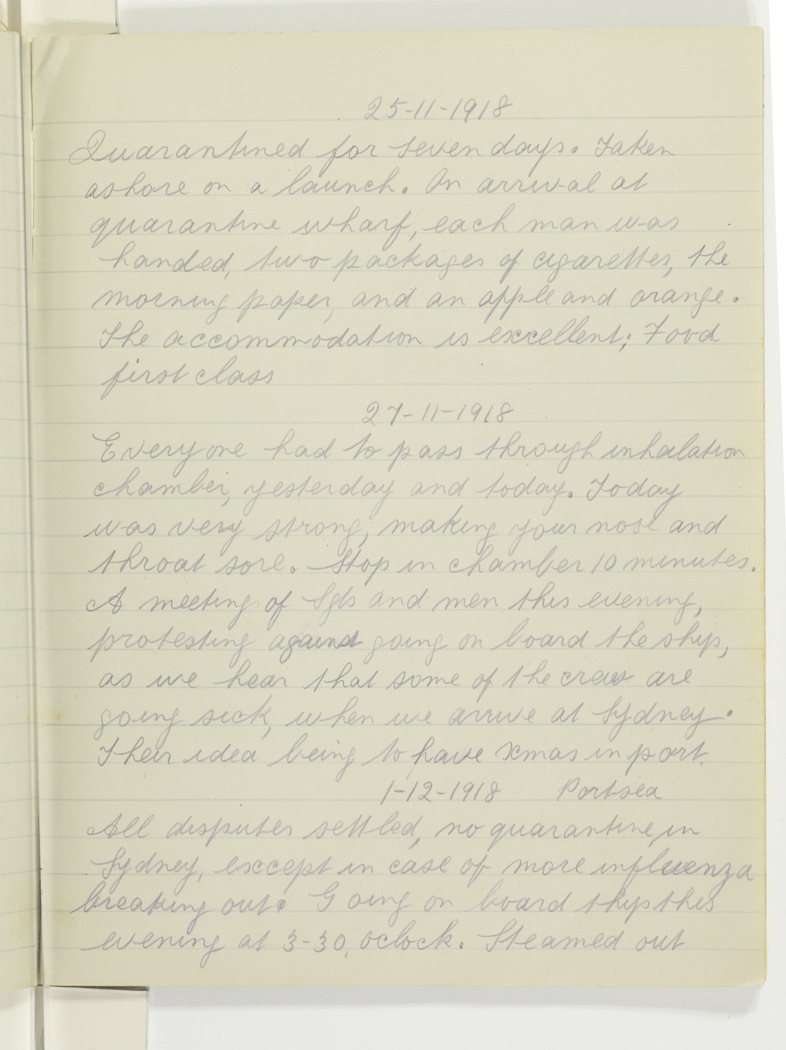 25-11-1918
Quarantined for seven days. Taken
ashore on a launch. On arrival at
quarantine wharf, each man was
handed, two packages of cigarettes, the
morning paper, and an apple and orange.
The accommodation is excellent; Food
first class
27-11-1918
Everyone had to pass through inhalation
chamber, yesterday and today. Today
was very strong, making your nose and
throat sore. Stop in chamber 10 minutes.
A meeting of Sgts and men this evening,
protesting against going on board the ship,
as we hear that some of the crew are
going sick, when we arrive at Sydney.
Their idea being to have Xmas in port.
1-12-1918 Portsea
All disputes settled, no quarantine, in
Sydney, except in case of more influenza
breaking out. Going on board ship this
evening at 3-30, oclock. Steamed out